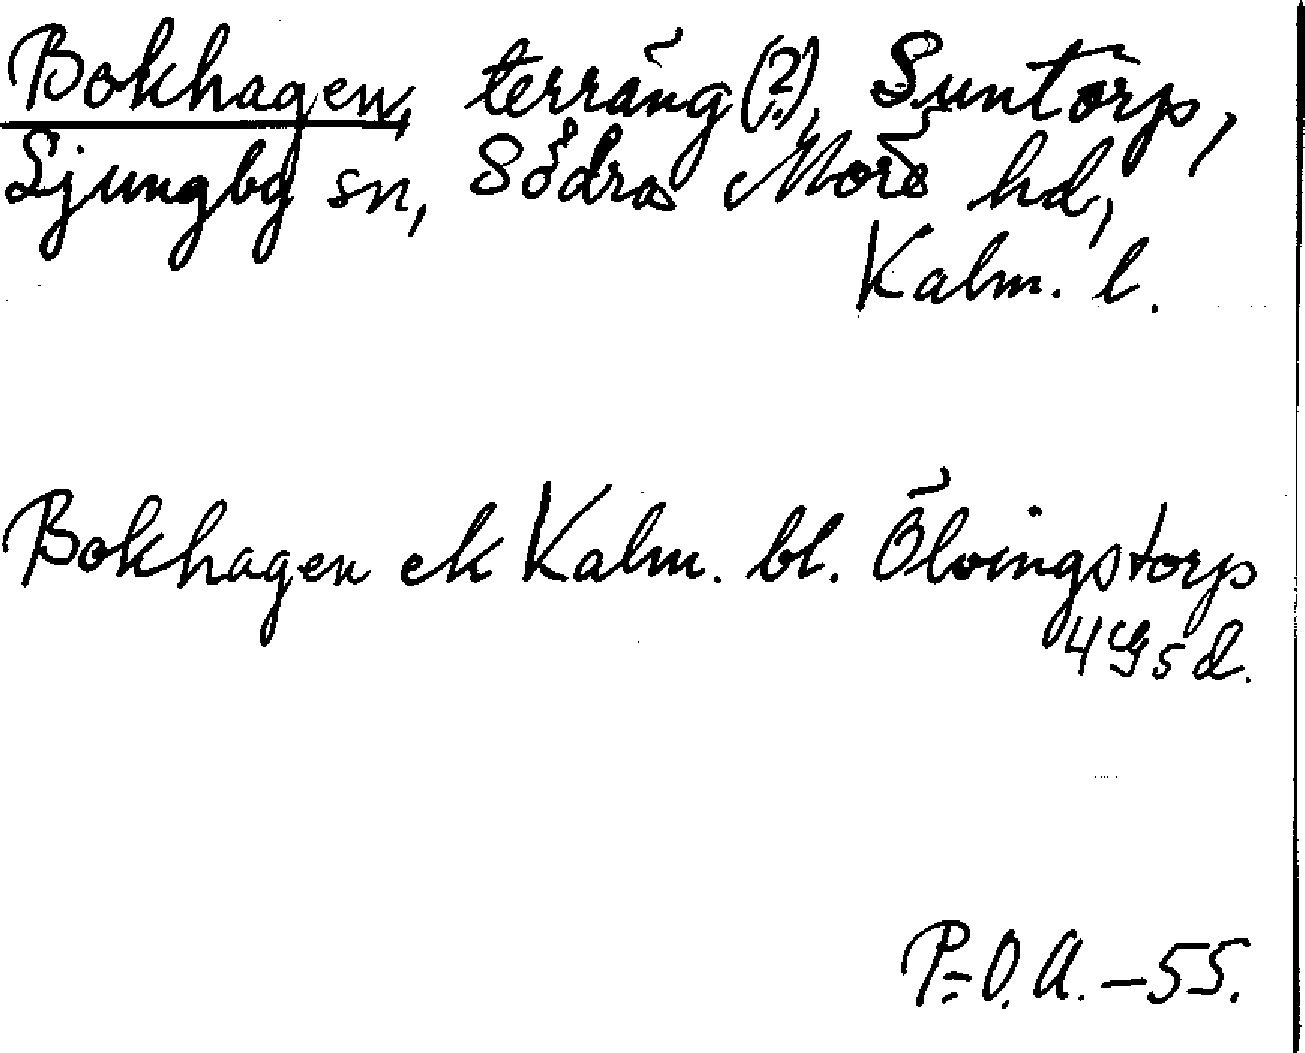 Bokhagen, terräng (?), Suntorp,
Ljungby sn, Södra Möre hd,
Kalm. l.
Bokhagen ek Kalm. bl. Ölvingstorp
4 G 5 d.
P.-O. A. – 55.